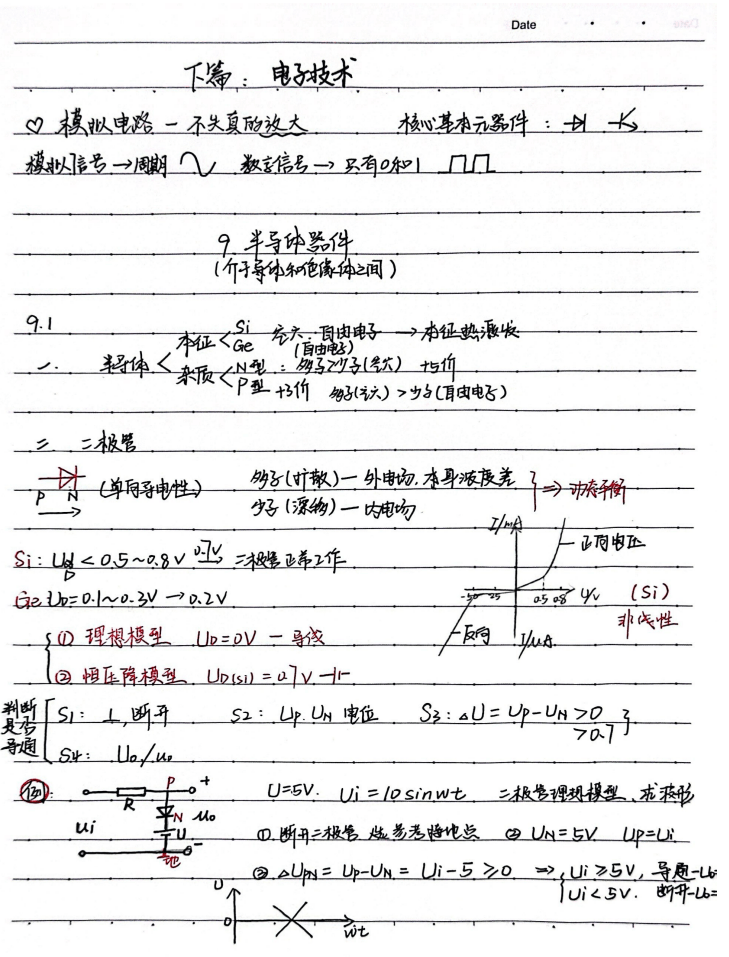 Date
下篇：电子技术
♡ 模拟电路 — 不失真的放大 核心基本元器件：
模拟信号→周期 数字信号→只有0和1
9 半导体器件
(介于导体和绝缘体之间)
9.1
一. 半导体 < 本征 < Si Ge 空穴、自由电子 → 本征热激发
(自由电子)
杂质 < N型：多子>少子(空穴) +5价
P型 +3价 多子(空穴) > 少子(自由电子)
二. 二极管
P N (单向导电性) 多子(扩散)— 外电场、本身浓度差
少子(漂移)— 内电场 } ⇒ 动态平衡
I/mA 正向电压
Si: UD < 0.5~0.8V 0.7V→ 二极管正常工作
Ge: UD=0.1~0.3V → 0.2V
-50 -25 0.5 0.8 U/V (Si)
非线性
-反向 I/μA
{ ① 理想模型 UD=0V — 导线
② 恒压降模型 UD(Si)=0.7V
判断是否导通 [ S1: ⊥, 断开 S2: UP. UN 电位 S3: △U=UP-UN >0
>0.7 }
S4: Uo/uo
例: P + R N uo ui U 地 -
U=5V. Ui=10sinwt 二极管理想模型, 求波形
①. 断开二极管 参考接地点 ② UN=5V UP=Ui
③ △UPN = UP-UN = Ui-5 ≥0 ⇒ { Ui≥5V, 导通-Uo=
Ui<5V. 断开-Uo=
U
0 wt